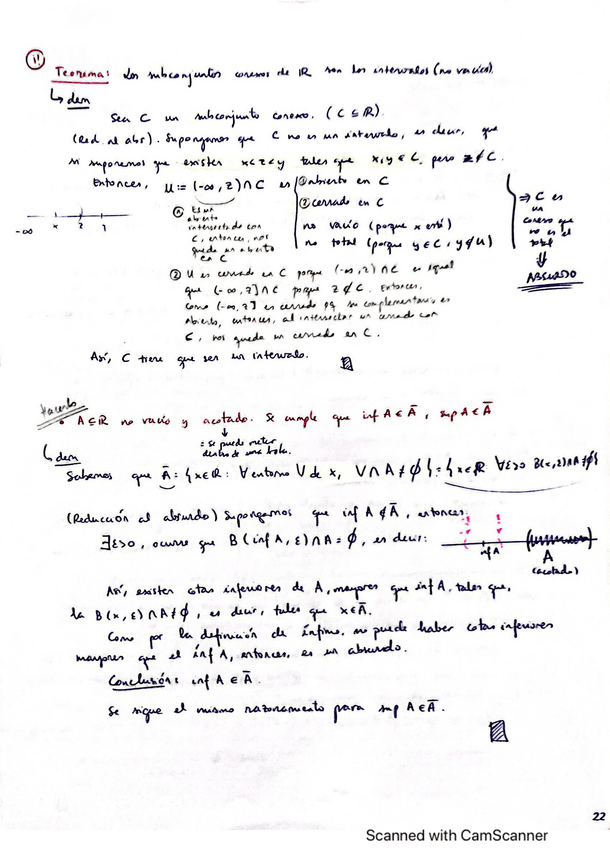 11
Teorema: Los subconjuntos conexos de ℝ son los intervalos (no vacíos).
↳ dem
Sea C un subconjunto conexo. (C ⊆ ℝ).
(Red. al abs). Supongamos que C no es un intervalo, es decir, que
si suponemos que existen x<z<y tales que x,y ∈ C, pero z ∉ C.
Entonces, U := (-∞, z) ∩ C es
① abierto en C
② cerrado en C
no vacío (porque x está)
no total (porque y ∈ C, y ∉ U)
⇒ C es
un
conexo que
no es el
total
⇓
ABSURDO
-∞ x z y
① Es un
abierto
intersectado con
C, entonces, nos
queda un abierto
en C
② U es cerrado en C porque (-∞, z) ∩ C es igual
que (-∞, z] ∩ C porque z ∉ C. Entonces,
como (-∞, z] es cerrado pq su complementario es
abierto, entonces, al intersectar un cerrado con
C, nos queda un cerrado en C.
Así, C tiene que ser un intervalo.
Hacerlo
• A ⊆ ℝ no vacío y acotado. Se cumple que inf A ∈ Ā, sup A ∈ Ā
↓
= se puede meter
dentro de una bola.
↳ dem
Sabemos que Ā = {x ∈ ℝ : ∀ entorno V de x, V ∩ A ≠ ∅} = {x ∈ ℝ ∀ε>0 B(x,ε) ∩ A ≠ ∅}
(Reducción al absurdo) Supongamos que inf A ∉ Ā, entonces:
∃ε>0, ocurre que B(inf A, ε) ∩ A = ∅, es decir:
inf A
A
(acotado)
Así, existen cotas inferiores de A, mayores que inf A, tales que,
la B(x, ε) ∩ A ≠ ∅, es decir, tales que x ∈ Ā.
Como por la definición de ínfimo, no puede haber cotas inferiores
mayores que el ínf A, entonces, es un absurdo.
Conclusión: inf A ∈ Ā.
Se sigue el mismo razonamiento para sup A ∈ Ā.
22
Scanned with CamScanner